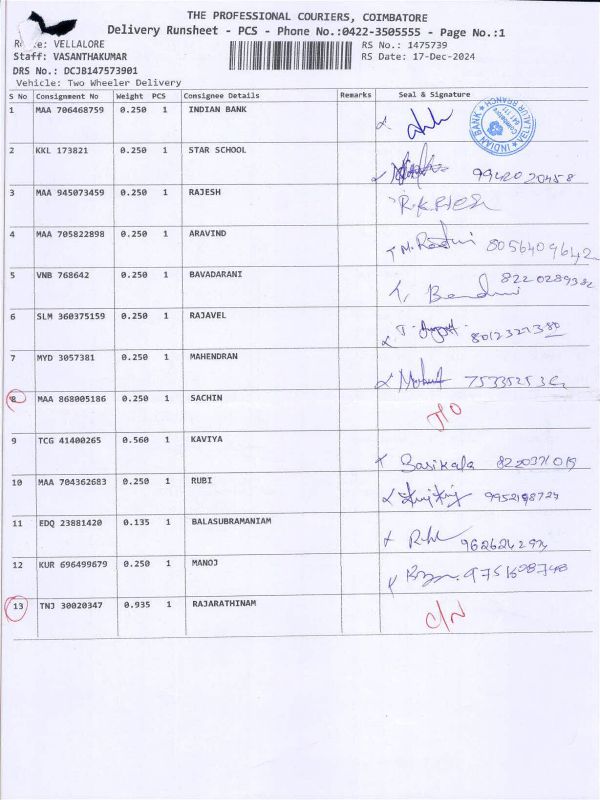 THE PROFESSIONAL COURIERS, COIMBATORE
Delivery Runsheet - PCS - Phone No.:0422-3505555 - Page No.:1
VELLALORE RS No.: 1475739
Staff: VASANTHAKUMAR RS Date: 17-Dec-2024
DRS No.: DCJB147573901
Vehicle: Two Wheeler Delivery
S No Consignment No Weight PCS Consignee Details Remarks Seal & Signature
1 MAA 706468759 0.250 1 INDIAN BANK INDIAN BANK Coimbatore
2 KKL 173821 0.250 1 STAR SCHOOL 9942020458
3 MAA 945073459 0.250 1 RAJESH
4 MAA 705822898 0.250 1 ARAVIND 8056409642
5 VNB 768642 0.250 1 BAVADARANI 8220289382
6 SLM 360375159 0.250 1 RAJAVEL
7 MYD 3057381 0.250 1 MAHENDRAN
8 MAA 868005186 0.250 1 SACHIN
9 TCG 41400265 0.560 1 KAVIYA Sasikala 8220371019
10 MAA 704362683 0.250 1 RUBI
11 EDQ 23881420 0.135 1 BALASUBRAMANIAM
12 KUR 696499679 0.250 1 MANOJ
13 TNJ 30020347 0.935 1 RAJARATHINAM C/N